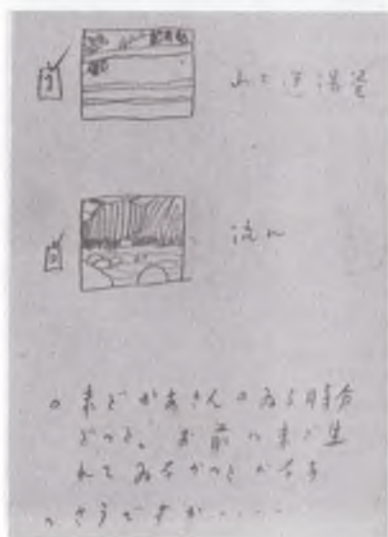 山と
流れ
まだかあさんのゐる時分
だつた。お前はまだ生
れてゐなかつた
さうですか・・・・